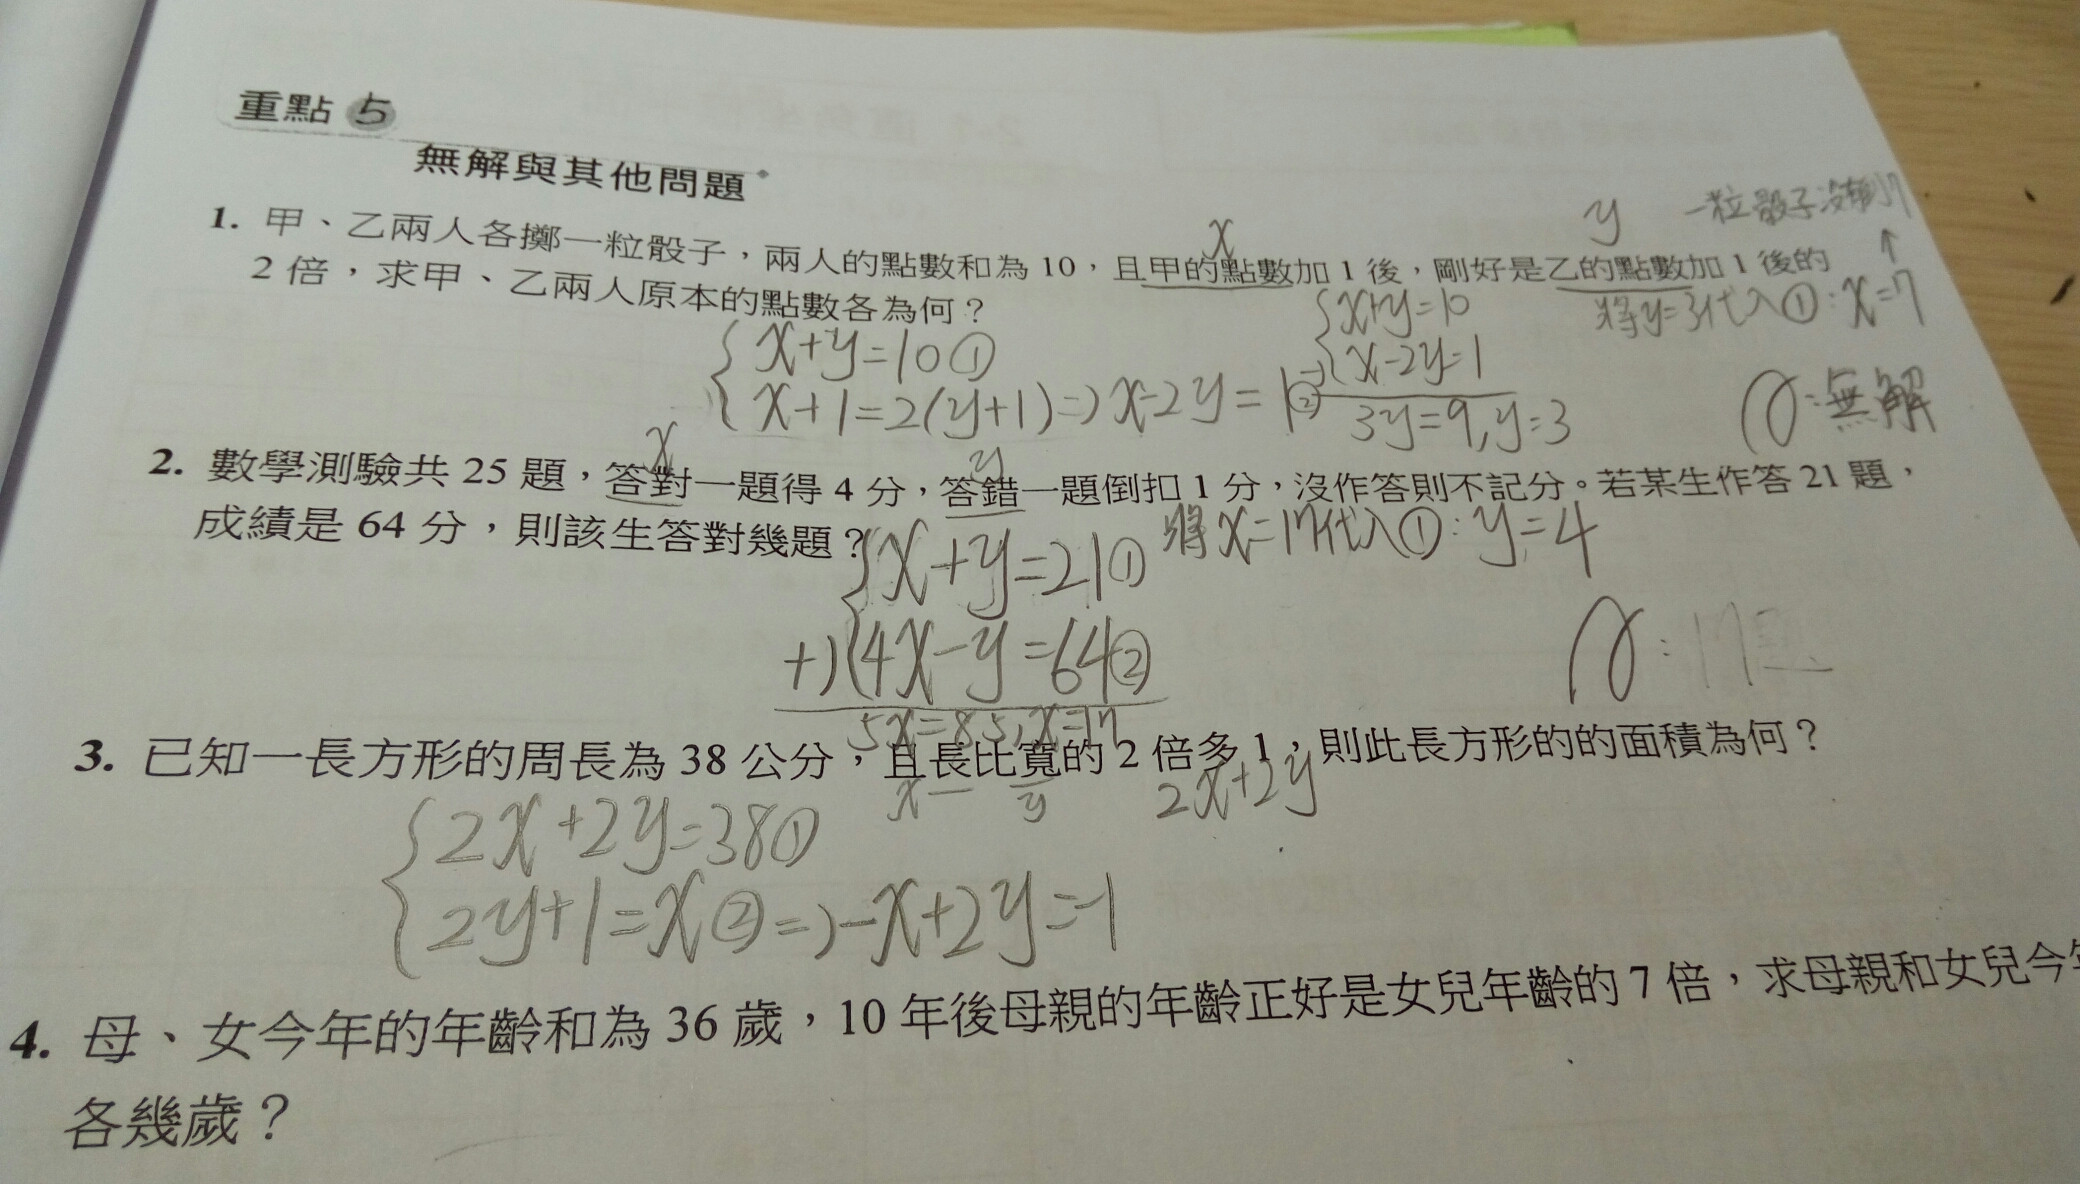 重點 5
無解與其他問題
y 一粒骰子沒有7
x
1. 甲、乙兩人各擲一粒骰子，兩人的點數和為 10，且甲的點數加 1 後，剛好是乙的點數加 1 後的
2 倍，求甲、乙兩人原本的點數各為何？
{x+y=10 將y=3代入①:x=7
{x+y=10① {x-2y=1
{x+1=2(y+1)=>x-2y=1② 3y=9,y=3 A:無解
x y
2. 數學測驗共 25 題，答對一題得 4 分，答錯一題倒扣 1 分，沒作答則不記分。若某生作答 21 題，
成績是 64 分，則該生答對幾題？
{x+y=21① 將x=17代入①:y=4
+){4x-y=64② A:17題
5x=85,x=17
3. 已知一長方形的周長為 38 公分，且長比寬的 2 倍多 1，則此長方形的的面積為何？
x y 2x+2y
{2x+2y=38①
{2y+1=x②=>-x+2y=-1
4. 母、女今年的年齡和為 36 歲，10 年後母親的年齡正好是女兒年齡的 7 倍，求母親和女兒今年
各幾歲？